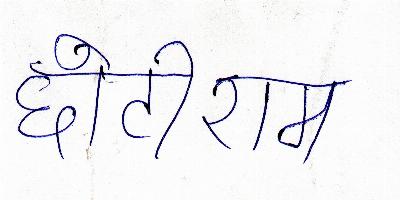 छोटी राम